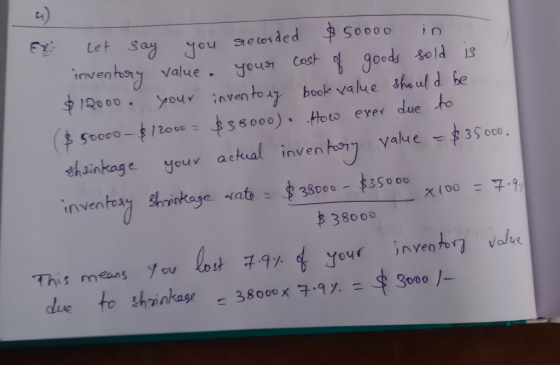 4)
Ex: Let say you recorded $50000 in
inventory value. your cost of goods sold is
$12000. your inventory book value should be
($50000-$12000 = $38000). How ever due to
shrinkage your actual inventory value = $35000.
inventory shrinkage rate = $38000 - $35000 / $38000 × 100 = 7.9%
This means you lost 7.9% of your inventory value
due to shrinkage = 38000 × 7.9% = $3000/-